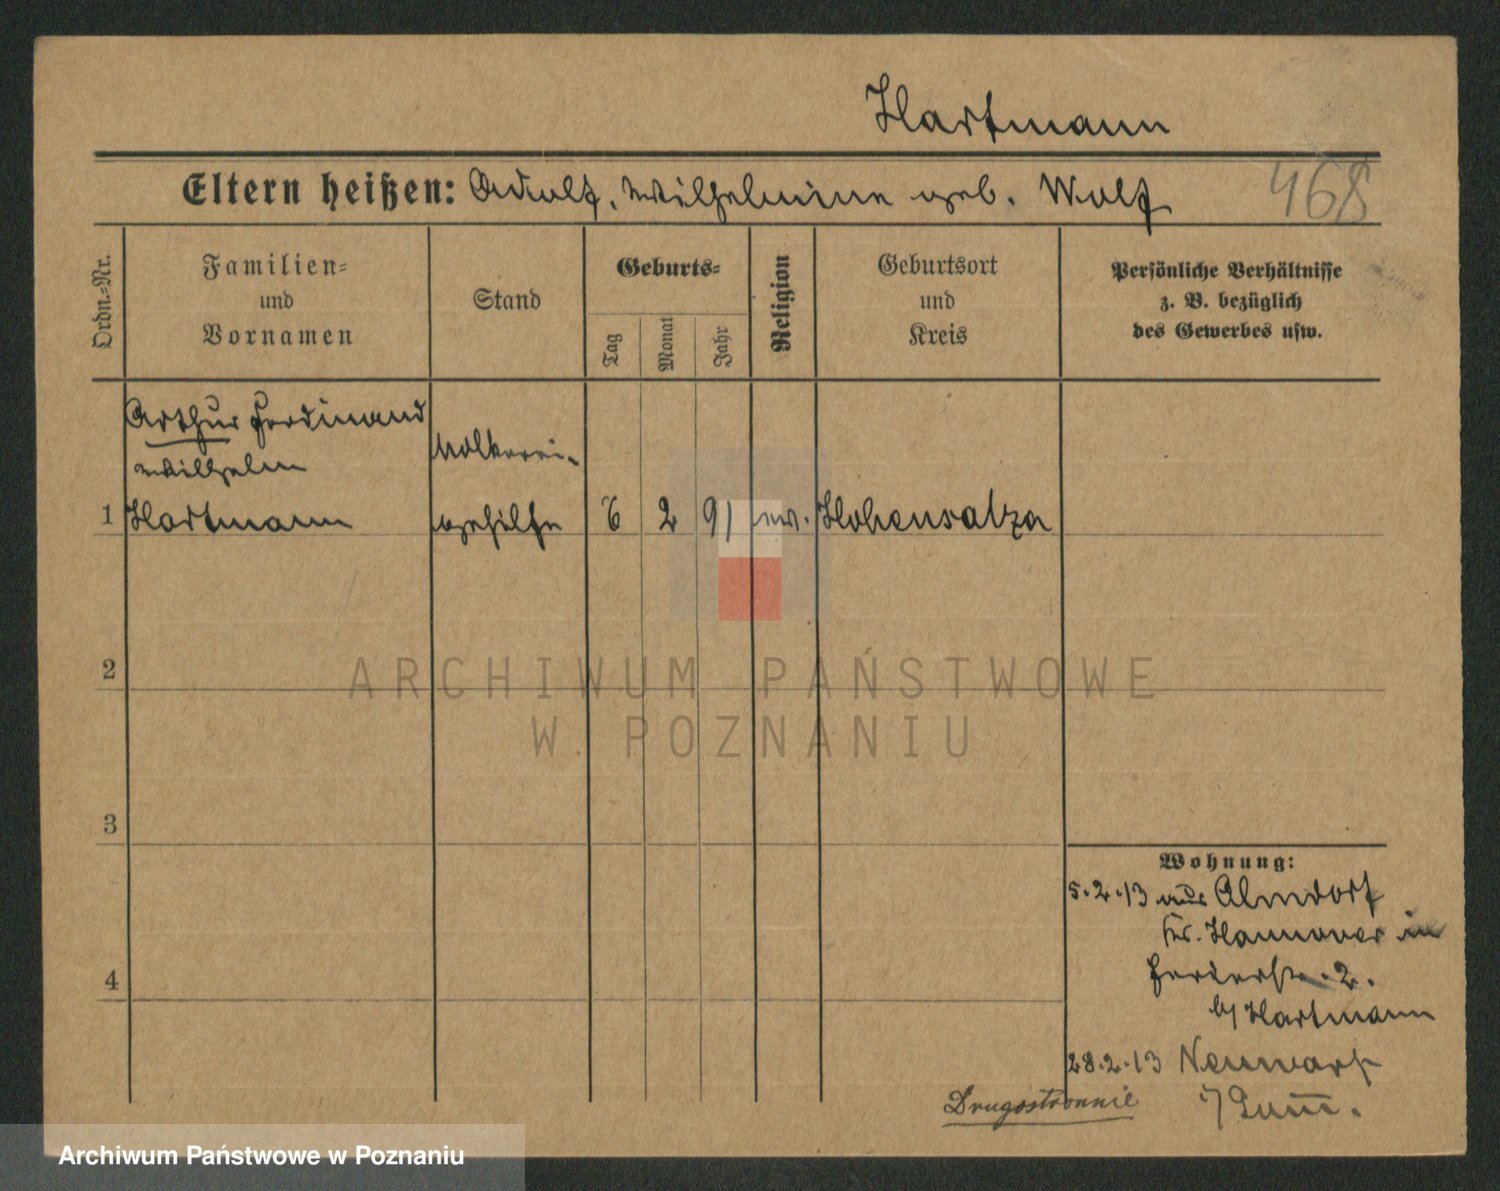 Hartmann
Eltern heißen: Adolf, Wilhelmine geb. Wolf
468
Ordn.-Nr.
Familien-
und
Vornamen
Stand
Geburts-
Tag
Monat
Jahr
Religion
Geburtsort
und
Kreis
Persönliche Verhältnisse
z. B. bezüglich
des Gewerbes usw.
Arthur Ferdinand
Wilhelm
1 Hartmann
Molkerei-
gehilfe
6 2 91 ev. Hohensalza
2
ARCHIWUM PAŃSTWOWE
W POZNANIU
3
4
Wohnung:
5.2.13 aus
Kr. Hannover in
2.
b/ Hartmann
28.2.13 Neuwarp
i/Pom.
Drugostronnie
Archiwum Państwowe w Poznaniu